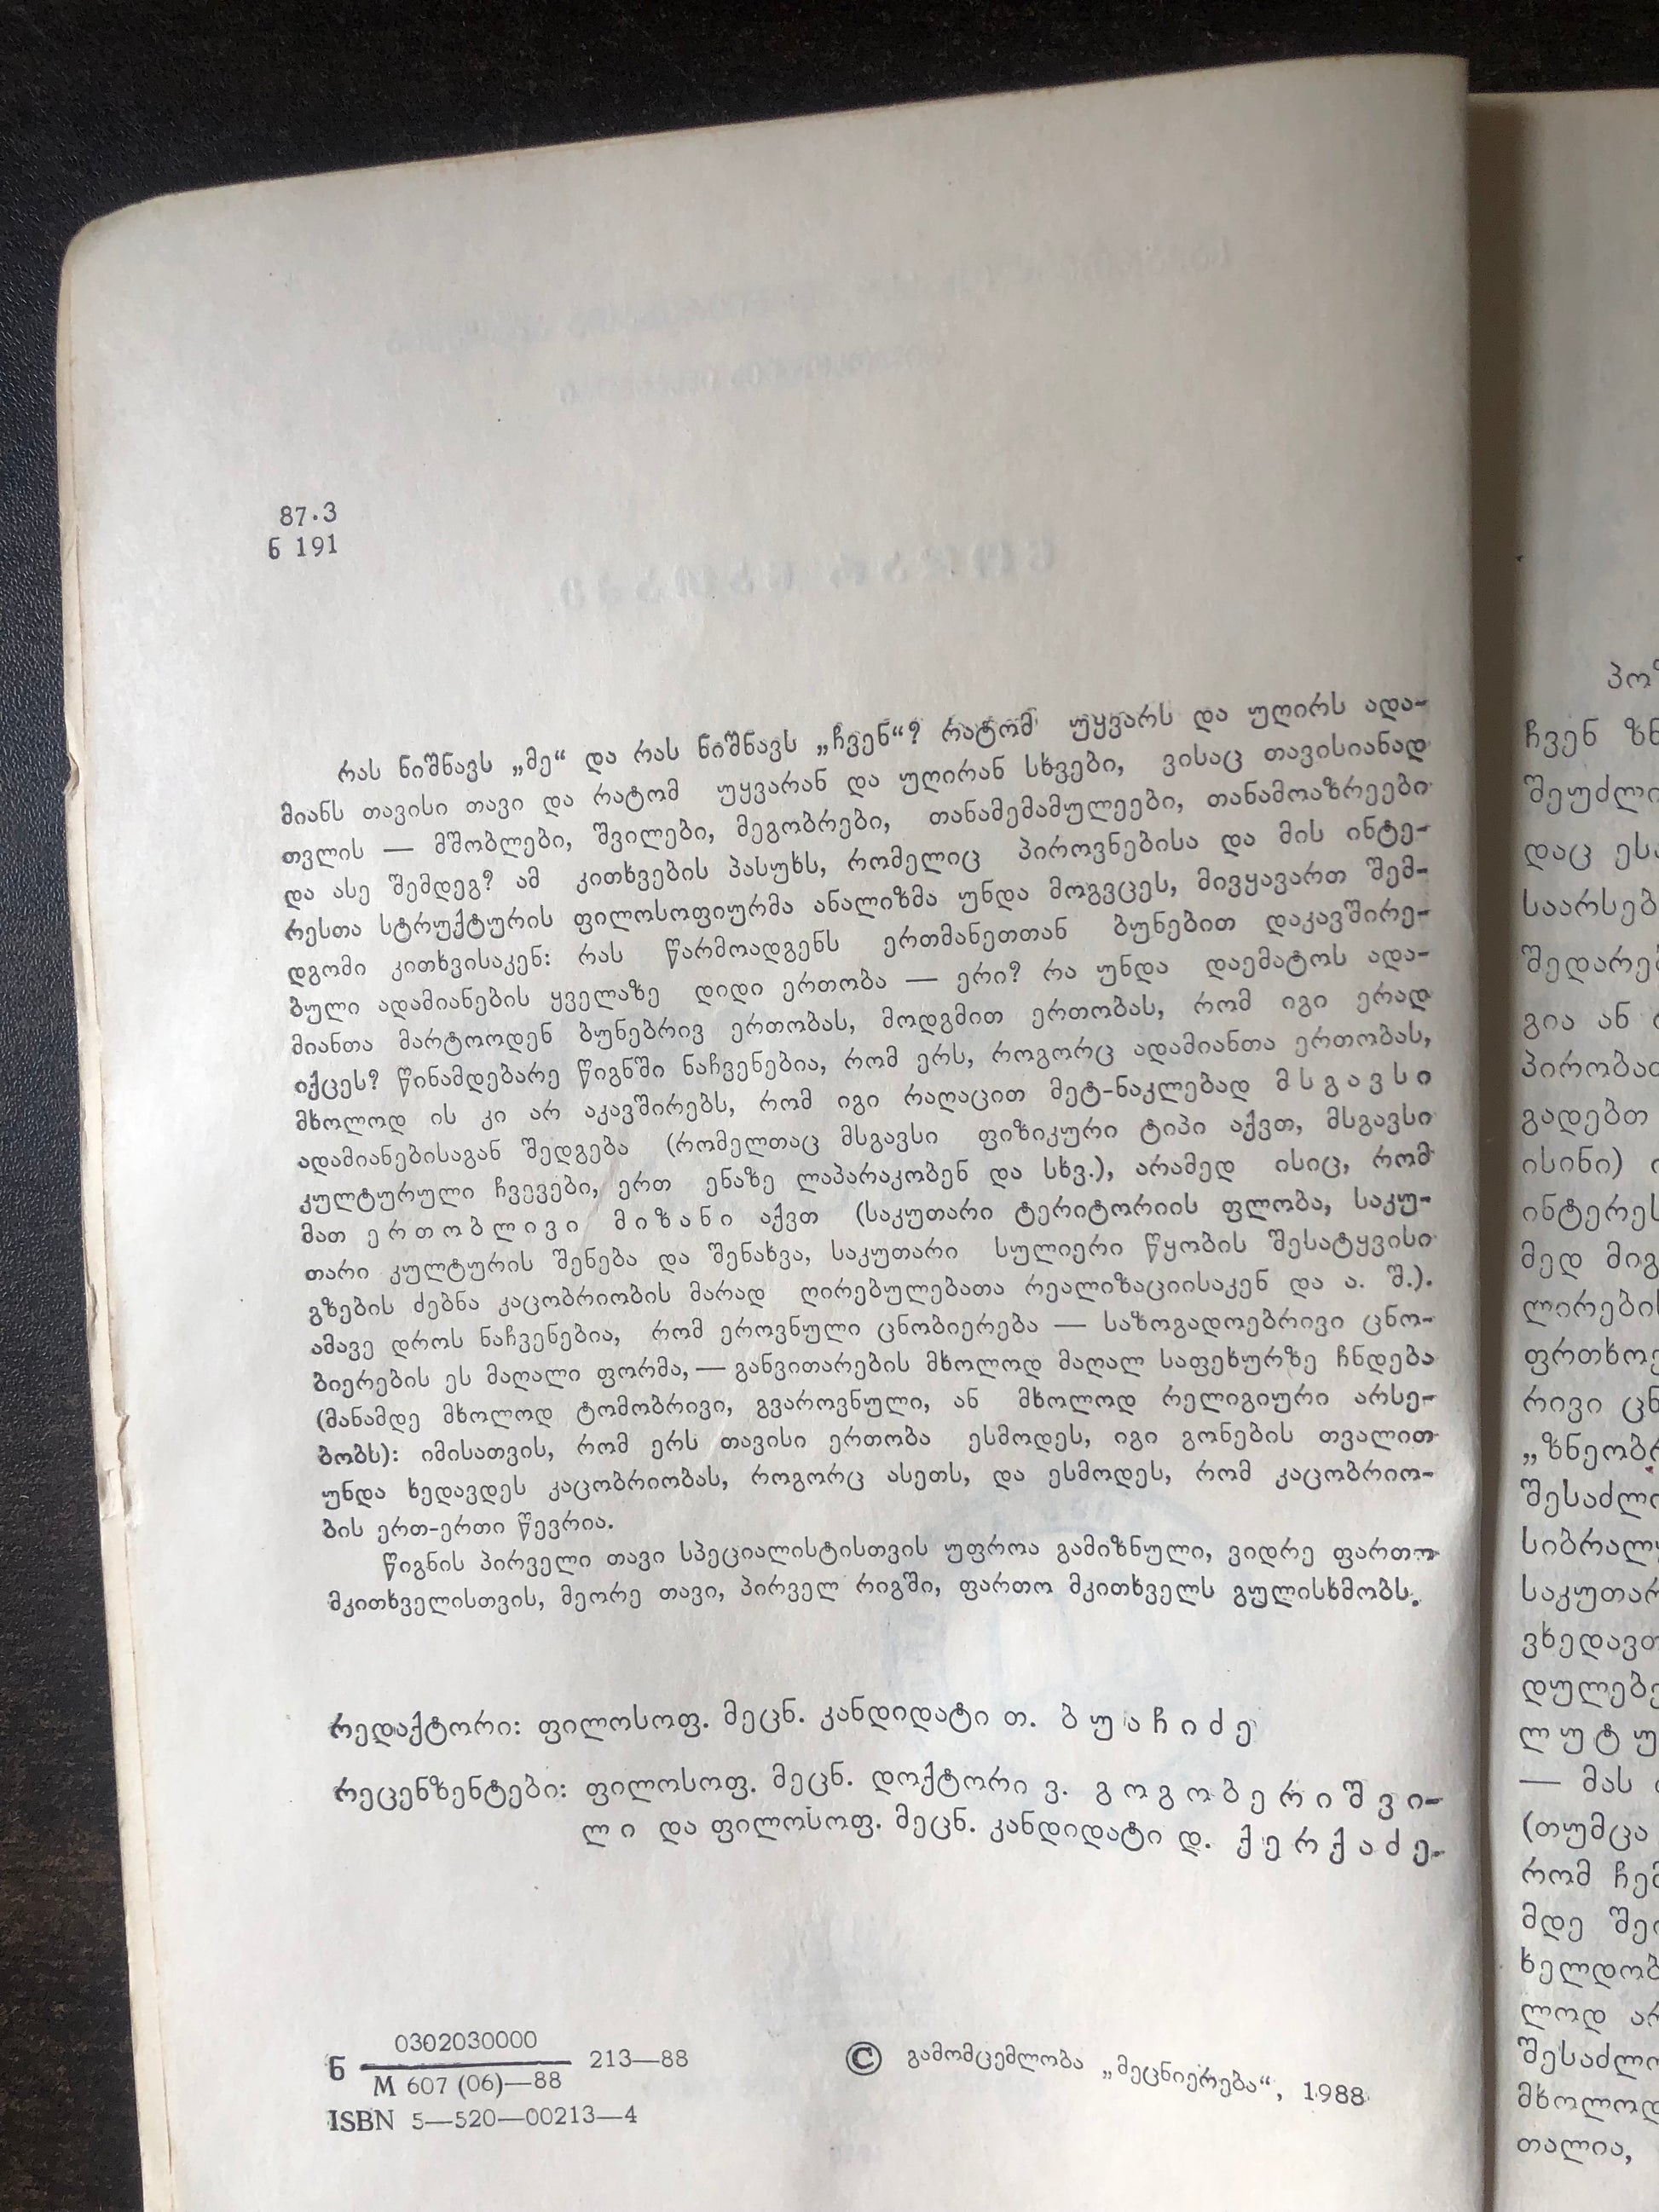 87.3
ნ 191
რას ნიშნავს „მე“ და რას ნიშნავს „ჩვენ“? რატომ უყვარს და უღირს ადა-
მიანს თავისი თავი და რატომ უყვარან და უღირან სხვები, ვისაც თავისიანად
თვლის — მშობლები, შვილები, მეგობრები, თანამემამულეები, თანამოაზრეები
და ასე შემდეგ? ამ კითხვების პასუხს, რომელიც პიროვნებისა და მის ინტე-
რესთა სტრუქტურის ფილოსოფიურმა ანალიზმა უნდა მოგვცეს, მივყავართ შემ-
დგომი კითხვისაკენ: რას წარმოადგენს ერთმანეთთან ბუნებით დაკავშირე-
ბული ადამიანების ყველაზე დიდი ერთობა — ერი? რა უნდა დაემატოს ადა-
მიანთა მარტოოდენ ბუნებრივ ერთობას, მოდგმით ერთობას, რომ იგი ერად
იქცეს? წინამდებარე წიგნში ნაჩვენებია, რომ ერს, როგორც ადამიანთა ერთობას,
მხოლოდ ის კი არ აკავშირებს, რომ იგი რაღაცით მეტ-ნაკლებად მსგავსი
ადამიანებისაგან შედგება (რომელთაც მსგავსი ფიზიკური ტიპი აქვთ, მსგავსი
კულტურული ჩვევები, ერთ ენაზე ლაპარაკობენ და სხვ.), არამედ ისიც, რომ
მათ ერთობლივი მიზანი აქვთ (საკუთარი ტერიტორიის ფლობა, საკუ-
თარი კულტურის შენება და შენახვა, საკუთარი სულიერი წყობის შესატყვისი
გზების ძებნა კაცობრიობის მარად ღირებულებათა რეალიზაციისაკენ და ა. შ.).
ამავე დროს ნაჩვენებია, რომ ეროვნული ცნობიერება — საზოგადოებრივი ცნო-
ბიერების ეს მაღალი ფორმა, — განვითარების მხოლოდ მაღალ საფეხურზე ჩნდება
(მანამდე მხოლოდ ტომობრივი, გვაროვნული, ან მხოლოდ რელიგიური არსე-
ბობს): იმისათვის, რომ ერს თავისი ერთობა ესმოდეს, იგი გონების თვალით
უნდა ხედავდეს კაცობრიობას, როგორც ასეთს, და ესმოდეს, რომ კაცობრიო-
ბის ერთ-ერთი წევრია.
წიგნის პირველი თავი სპეციალისტისთვის უფროა გამიზნული, ვიდრე ფართო
მკითხველისთვის, მეორე თავი, პირველ რიგში, ფართო მკითხველს გულისხმობს.
რედაქტორი: ფილოსოფ. მეცნ. კანდიდატი თ. ბუაჩიძე
რეცენზენტები: ფილოსოფ. მეცნ. დოქტორი ვ. გოგობერიშვი-
ლი და ფილოსოფ. მეცნ. კანდიდატი დ. ქერქაძე.
0302030000
ნ 213—88
M 607 (06)—88
ISBN 5—520—00213—4
© გამომცემლობა „მეცნიერება“, 1988
ჩვენ
დაც
გია ან
ისინი)
მედ
„ზნეობრ
— მას
(თუმცა
რომ
მდე
ლოდ
თალია,